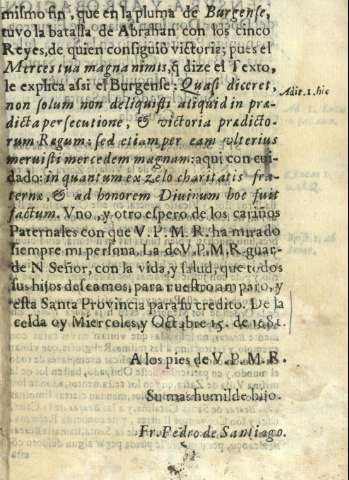 mismo fin, que en la pluma de Burgense,
tuvo la batalla de Abrahan con los cinco
Reyes, de quien consiguiò victoria; pues el
Merces tua magna nimis, q̃ dize el Texto,
le explica assi el Burgense: Quasi diceret,
Adit. 1. hic
non solum non deliquisti aliquid in præ
dicta persecutione, & victoria prædicto-
rum Regum: sed etiam per eam vlterius
meruisti mercedem magnam: aqui con cui-
dado: in quantum ex zelo charitatis fra-
ternæ, & ad honorem Divinum hoc fuit
factum. Vno, y otro espero de los cariños
Paternales con que V. P. M. R. ha mirado
siempre mi persona. La de V. P. M. R. guar-
de N. Señor, con la vida, y salud, que todos
sus hijos deseamos, para nuestro amparo, y
esta Santa Provincia para su credito. De la
celda oy Miercoles, y Octubre 15. de 1681.
A los pies de V. P. M. R.
Su mas humilde hijo.
Fr. Pedro de Santiago.